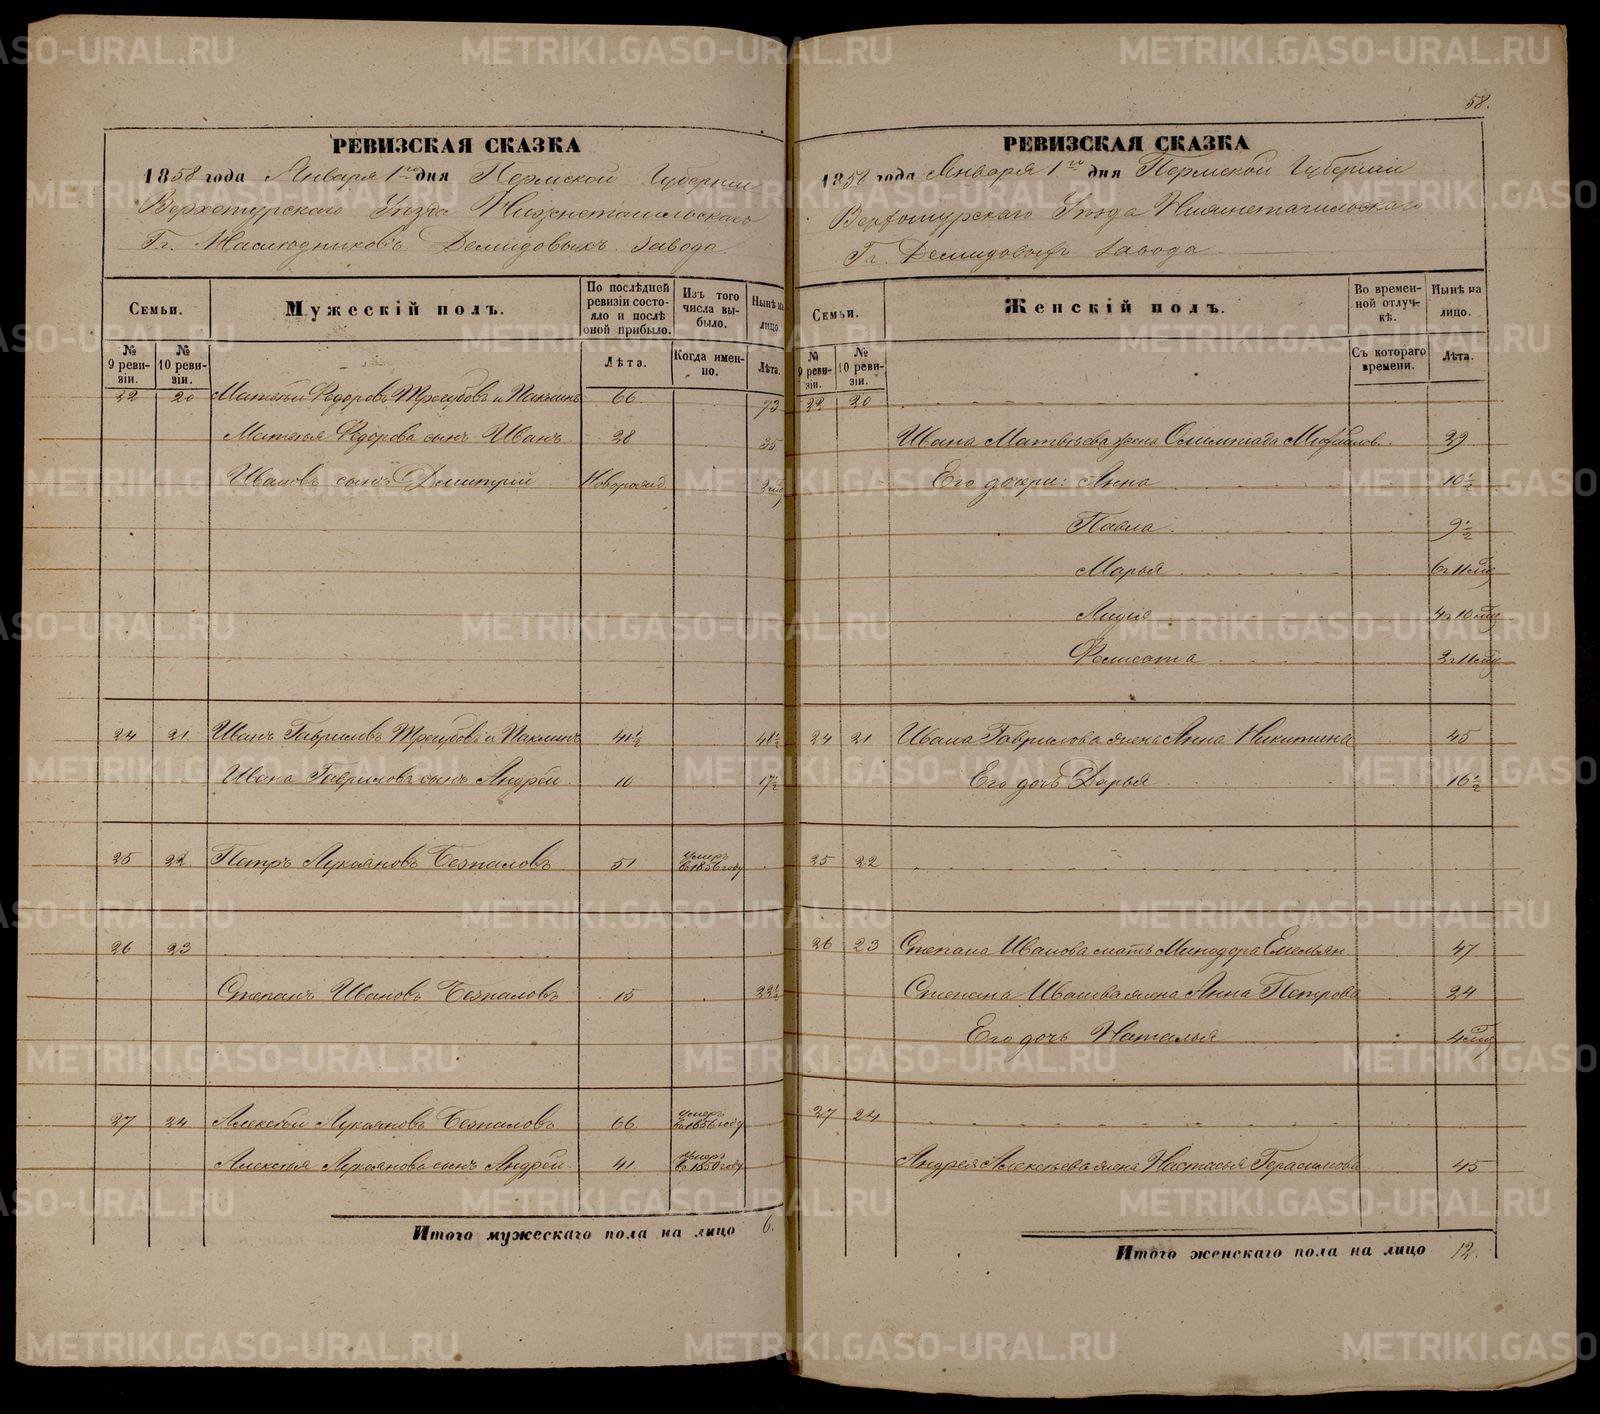 58.
РЕВИЗСКАЯ СКАЗКА
1858 года Января 1го дня Пермской Губернии
Верхотурскаго Уезда Нижнетагильскаго
Гг. Наследниковъ Демидовыхъ завода
Семьи. Мужескій полъ. По послѣдней ревизіи состояло и послѣ оной прибыло. Изъ того числа выбыло. Нынѣ на лицо.
№ 9 ревизіи. № 10 ревизіи. Лѣта. Когда именно. Лѣта.
22 20 Матвей Федоровъ Трегубовъ и Паклинъ 66 73
Матвея Федорова сынъ Иванъ 28 35
Ивановъ сынъ Дмитрій Новорожд
24 21 Иванъ Гавриловъ Трегубовъ и Паклинъ 41½ 48½
Ивана Гаврилова сынъ Андрей 10 17½
25 22 Петръ Лукояновъ Безпаловъ 51 умеръ въ 1856 году
26 23
Степанъ Ивановъ Безпаловъ 15 22½
27 24 Алексей Лукояновъ Безпаловъ 66 умеръ въ 1856 году
Алексея Лукоянова сынъ Андрей 41 умеръ въ 1850 году
Итого мужескаго пола на лицо 6.
РЕВИЗСКАЯ СКАЗКА
1858 года Января 1го дня Пермской Губерніи
Верхотурскаго Уезда Нижнетагильскаго
Гг. Демидовыхъ завода
Семьи. Женскій полъ. Во временной отлучкѣ. Нынѣ на лицо.
№ 9 ревизіи. № 10 ревизіи. Съ котораго времени. Лѣта.
22 20
Ивана Матвеева жена Олимпіада Михайлов. 29
Его дочери: Анна 10½
Павла 9½
Марья 6 г 11 мец
Лидія 4 г 10 мец
Фелисата 2 г 11 мец
24 21 Ивана Гаврилова жена Анна Никитина 45
Его дочь Дарья 16½
25 22
26 23 Степана Иванова мать Минодора Емельян. 47
Степана Иванова жена Анна Петрова 24
Его дочь Наталья 4 мец
27 24
Андрея Алексеева жена Настасья Герасимова 45
Итого женскаго пола на лицо 12.
METRIKI.GASO-URAL.RU